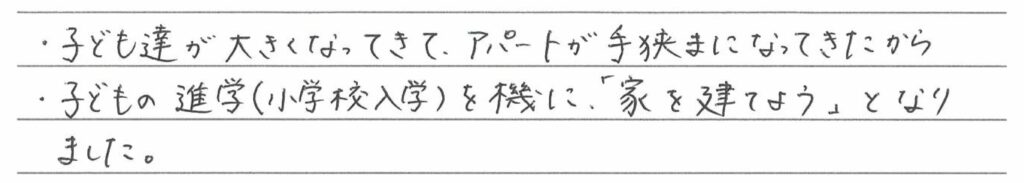 ・子ども達が大きくなってきて、アパートが手狭まになってきたから
・子どもの進学(小学校入学)を機に、「家を建てよう」となり
ました。